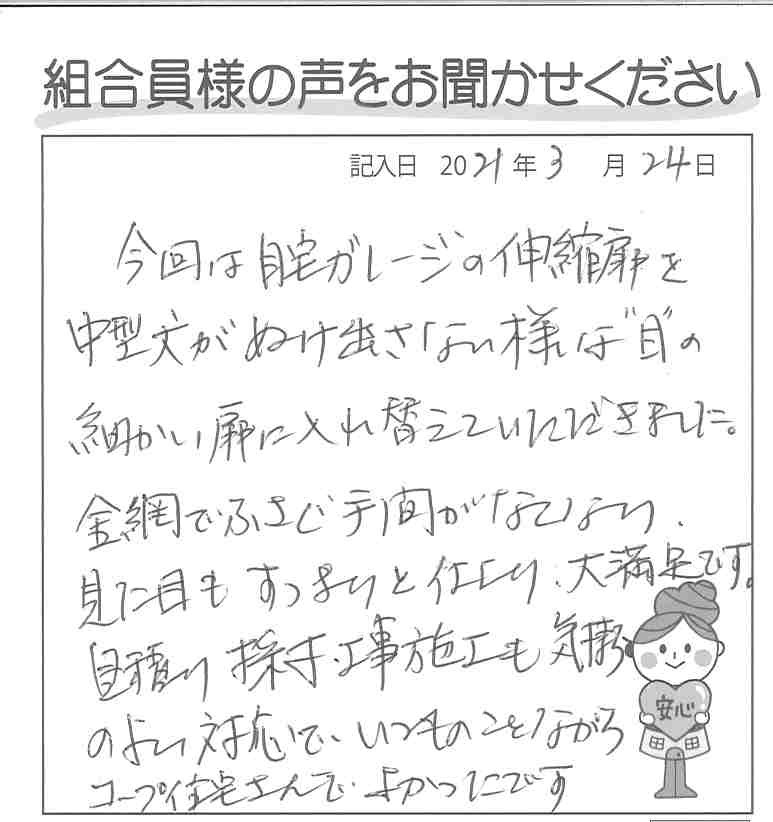 組合員様の声をお聞かせください
記入日 2021年3月24日
今回は自宅ガレージの伸縮扉を
中型犬がぬけ出さない様な"目"の
細かい扉に入れ替えていただきました。
金網でふさぐ手間がなくなり、
見た目もすっきりと仕上り、大満足です。
見積り 採寸、工事施工も気持
のよい対応で、いつものことながら
コープ住宅さんでよかったです
安心